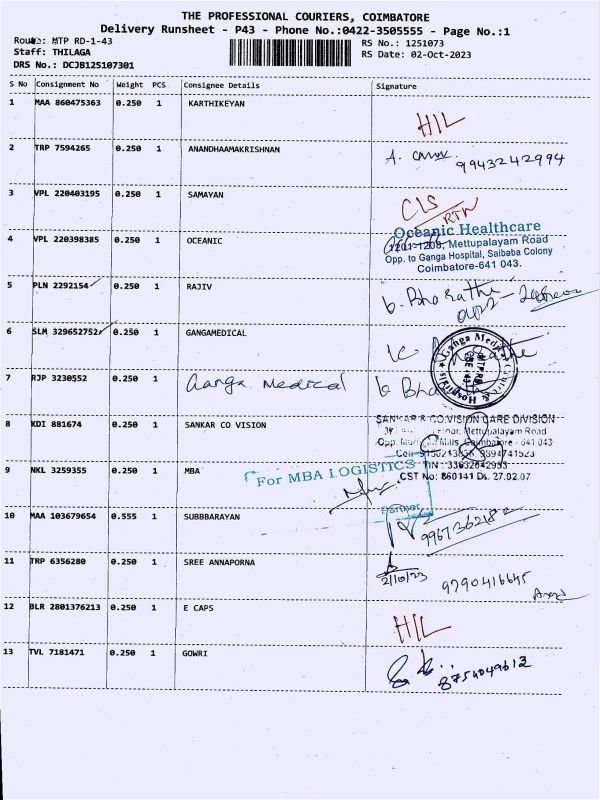 THE PROFESSIONAL COURIERS, COIMBATORE
Delivery Runsheet - P43 - Phone No.:0422-3505555 - Page No.:1
Route: MTP RD-1-43
RS No.: 1251073
Staff: THILAGA
RS Date: 02-Oct-2023
DRS No.: DCJB125107301
S No Consignment No Weight PCS Consignee Details Signature
1 MAA 860475363 0.250 1 KARTHIKEYAN
HIL
2 TRP 7594265 0.250 1 ANANDHAAMAKRISHNAN
A. 9943242994
3 VPL 220403195 0.250 1 SAMAYAN
CLS
RTN
Oceanic Healthcare
4 VPL 220398385 0.250 1 OCEANIC
1201-1208, Mettupalayam Road
Opp. to Ganga Hospital, Saibaba Colony
Coimbatore-641 043.
5 PLN 2292154 0.250 1 RAJIV
b. Bharathi
6 SLM 329652752 0.250 1 GANGAMEDICAL
Ganga Medical Centre & Hospitals
MTP.RD
7 RJP 3230552 0.250 1 Ganga Medical
b Bha
8 KDI 881674 0.250 1 SANKAR CO VISION
SANKAR'S CO.VISION CARE DIVISION
Floor, Mettupalayam Road
Opp. Mills, Coimbatore - 641 043
Cell 9894741523
9 NKL 3259355 0.250 1 MBA
For MBA LOGISTICS
TIN : 33632042933
CST No: 860141 Dt. 27.02.07
Partner
10 MAA 103679654 0.555 1 SUBBBARAYAN
9967362182
11 TRP 6356280 0.250 1 SREE ANNAPORNA
2/10/23 9790416645
12 BLR 2801376213 0.250 1 E CAPS
HIL
13 TVL 7181471 0.250 1 GOWRI
8754049612